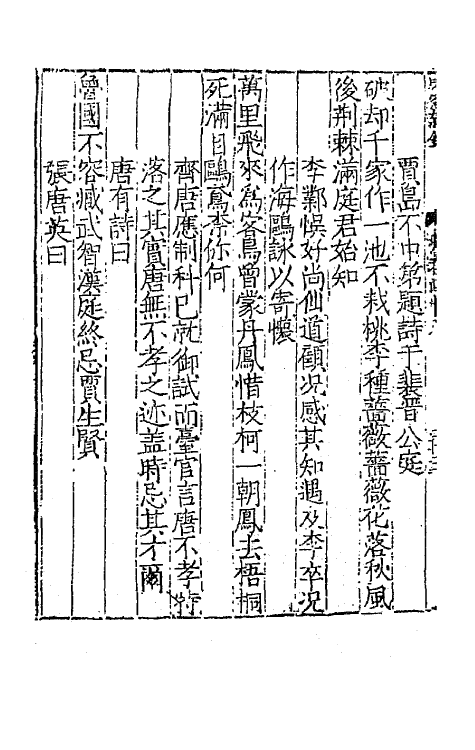 賈島不中第題詩于裴晉公庭
破却千家作一池不栽桃李種薔薇薔薇花落秋風
後荆棘滿庭君始知
李鄴悞好尚仙道顧况感其知遇及李卒况
作海鷗詠以寄懷
萬里飛來爲客鳥曾蒙丹鳳惜枝柯一朝鳳去梧桐
死滿目鴟鳶柰你何
齊唐應制科已就御試而臺官言唐不孝特
落之其實唐無不孝之迹盖時忌其才爾
唐有詩曰
魯國不容臧武智漢庭終忌賈生賢
張唐英曰